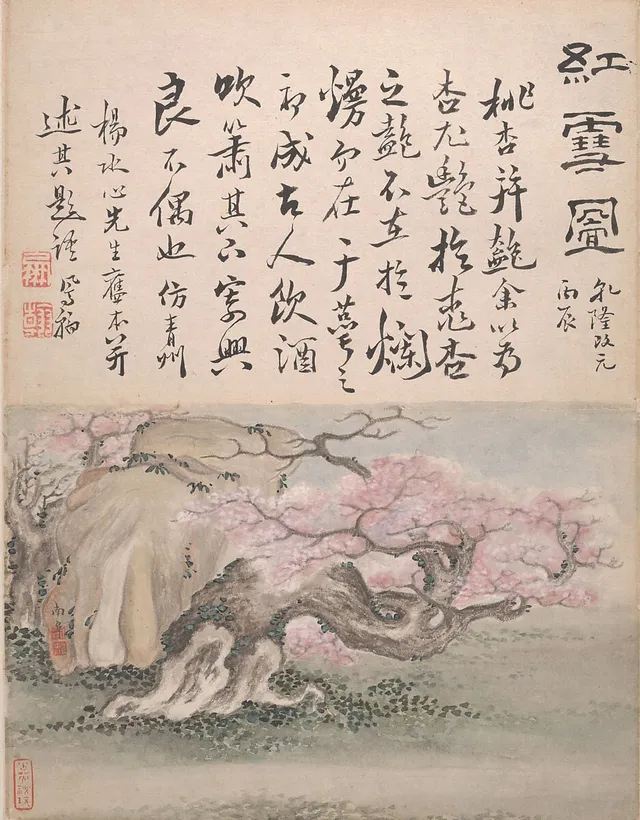 紅雪圖
乾隆改元
丙辰
桃杏并艷余以為
杏尤艷於桃杏
之艷不在於爛
熳而在于之
成古人飲酒
吹簫其下寄興
良不偶也仿青州
楊水心先生舊本并
述其題語
南阜